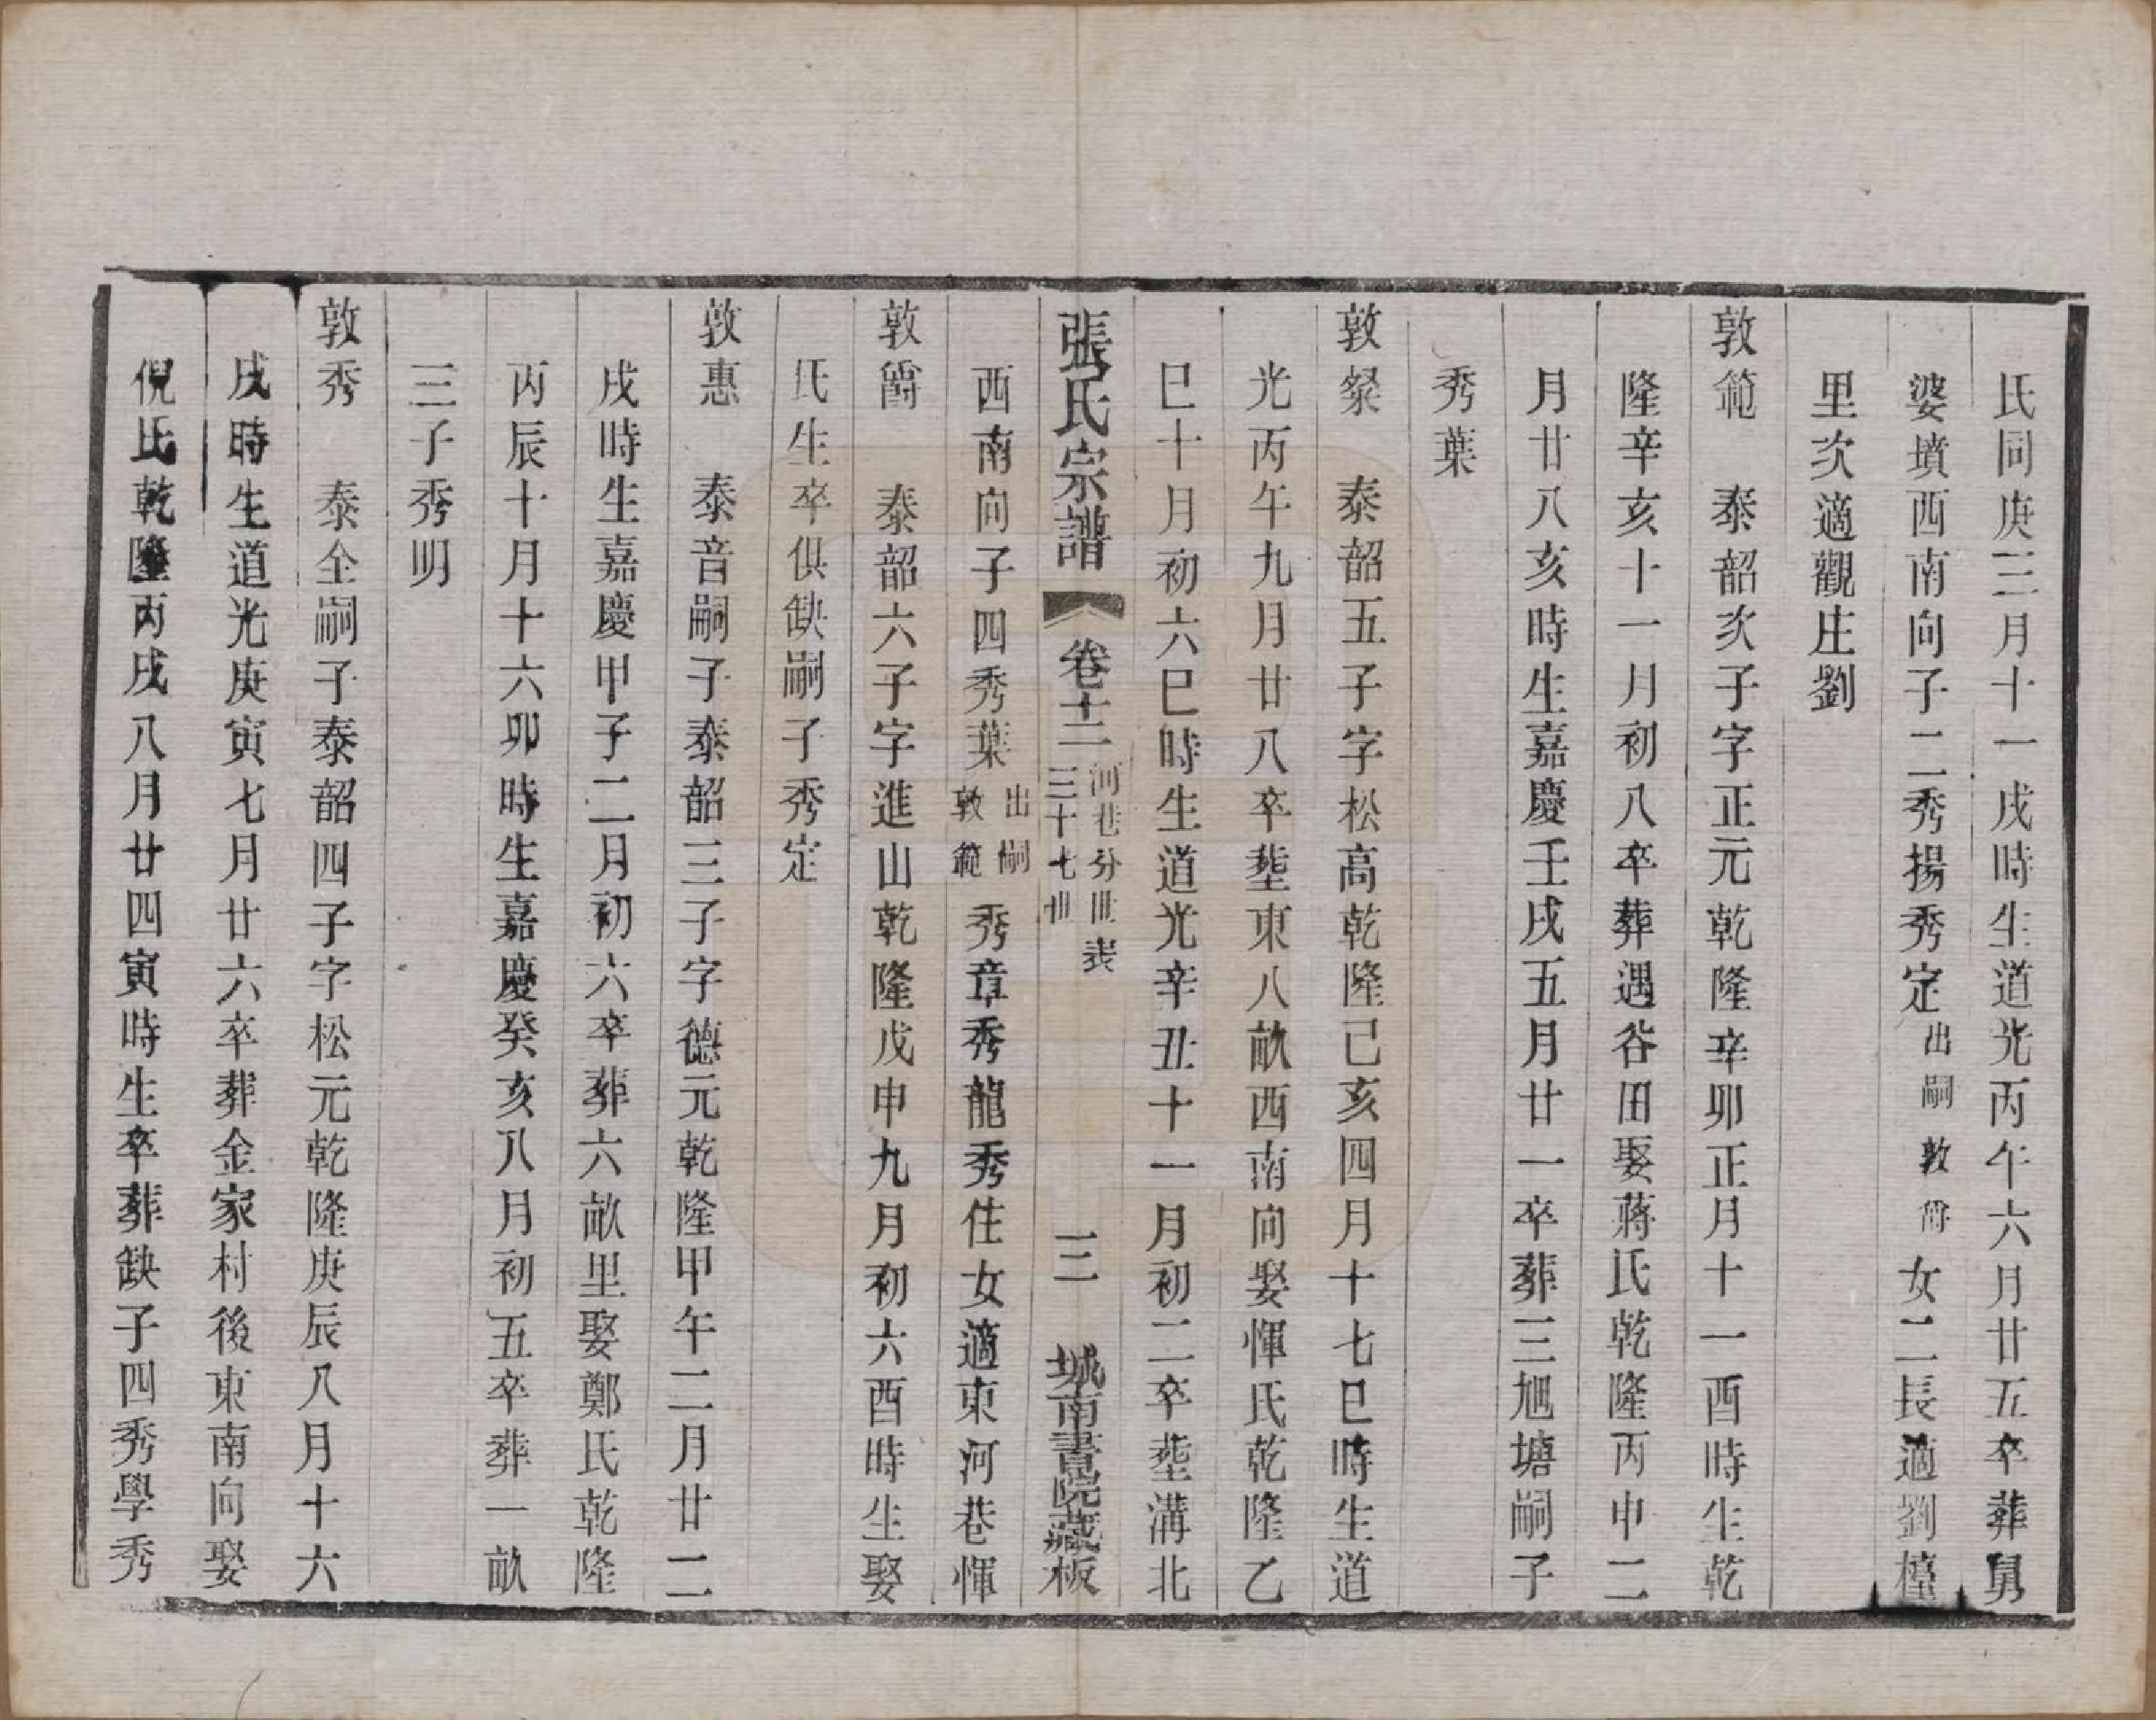 氏同庚三月十一戌時生道光丙午六月廿五卒葬舅
婆墳西南向子二秀揚秀定出嗣敦爵女二長適劉檯
里次適觀庄劉
敦範　泰韶次子字正元乾隆辛卯正月十一酉時生乾
隆辛亥十一月初八卒葬遇谷田娶蔣氏乾隆丙申二
月廿八亥時生嘉慶壬戌五月廿一卒葬三旭塘嗣子
秀葉
敦粲　泰韶五子字松高乾隆己亥四月十七巳時生道
光丙午九月廿八卒塟東八畝西南向娶惲氏乾隆乙
巳十月初六巳時生道光辛丑十一月初二卒塟溝北
西南向子四秀葉出嗣敦範秀章秀龍秀住女適東河巷惲
張氏宗譜　卷十二　河巷分世表　三十七世　三　城南書院藏板
敦爵　泰韶六子字進山乾隆戊申九月初六酉時生娶
氏生卒俱缺嗣子秀定
敦惠　泰音嗣子泰韶三子字德元乾隆甲午二月廿二
戌時生嘉慶甲子二月初六卒葬六畝里娶鄭氏乾隆
丙辰十月十六卯時生嘉慶癸亥八月初五卒葬一畝
三子秀明
敦秀　泰全嗣子泰韶四子字松元乾隆庚辰八月十六
戌時生道光庚寅七月廿六卒葬金家村後東南向娶
倪氏乾隆丙戌八月廿四寅時生卒葬缺子四秀學秀